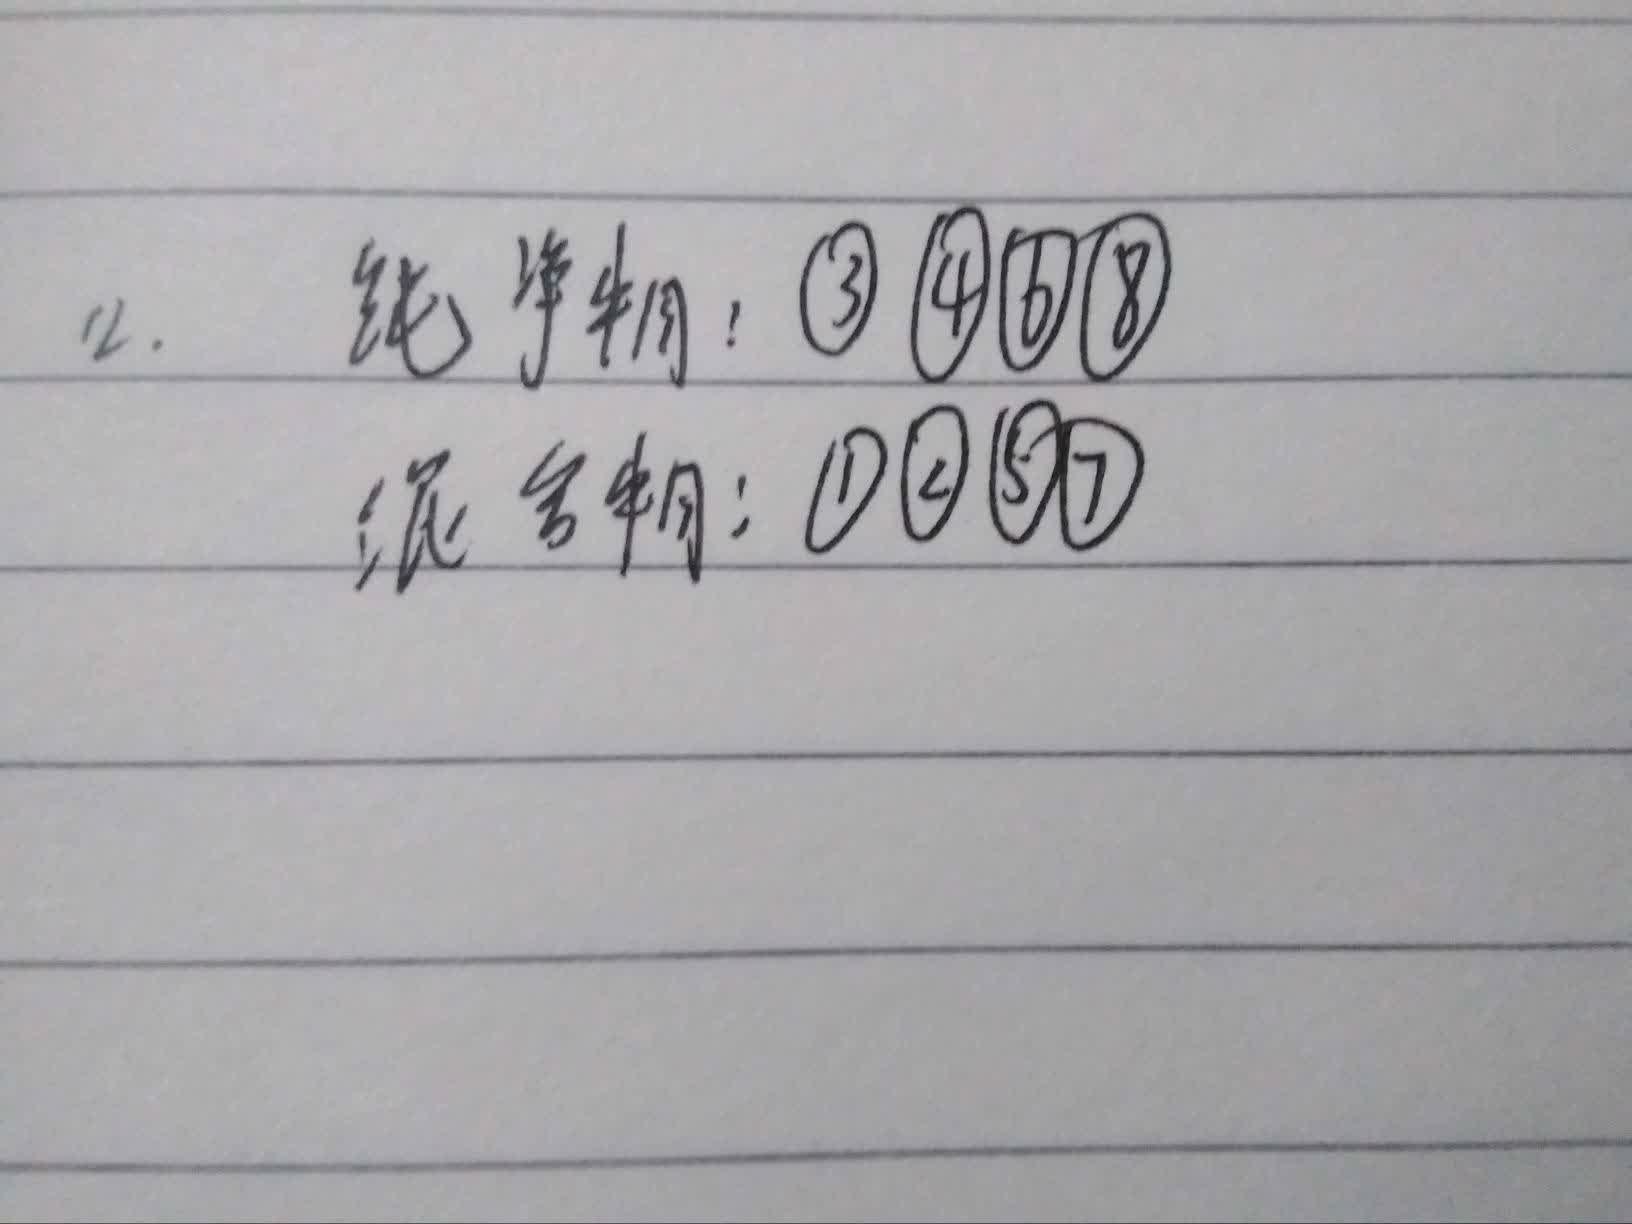 12. 纯净物: ③ ④ ⑥ ⑧
混合物: ① ② ⑤ ⑦